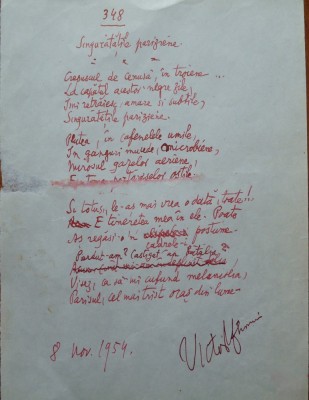 348
Singurătățile pariziene
Crepuscul de cenușă, în troiene ...
La capătul acestor negre zile,
Îmi retrăiesc, amare și subtile,
Singurătățile pariziene.
Putea, în cafenelele umile,
În ganguri mucede, microbiene,
Mirosul gazelor aeriene,
ostile
Și totuși, le-aș mai vrea o dată, toate!!
E tinerețea mea în ele. Poate
Aș regăsi-o 'n postume.
Pierdut-am? Câștigat-am bătălia?
Visez, ca să-mi cufund melancolia,
Parisul, cel mai trist oraș din lume.
8 Nov. 1954.